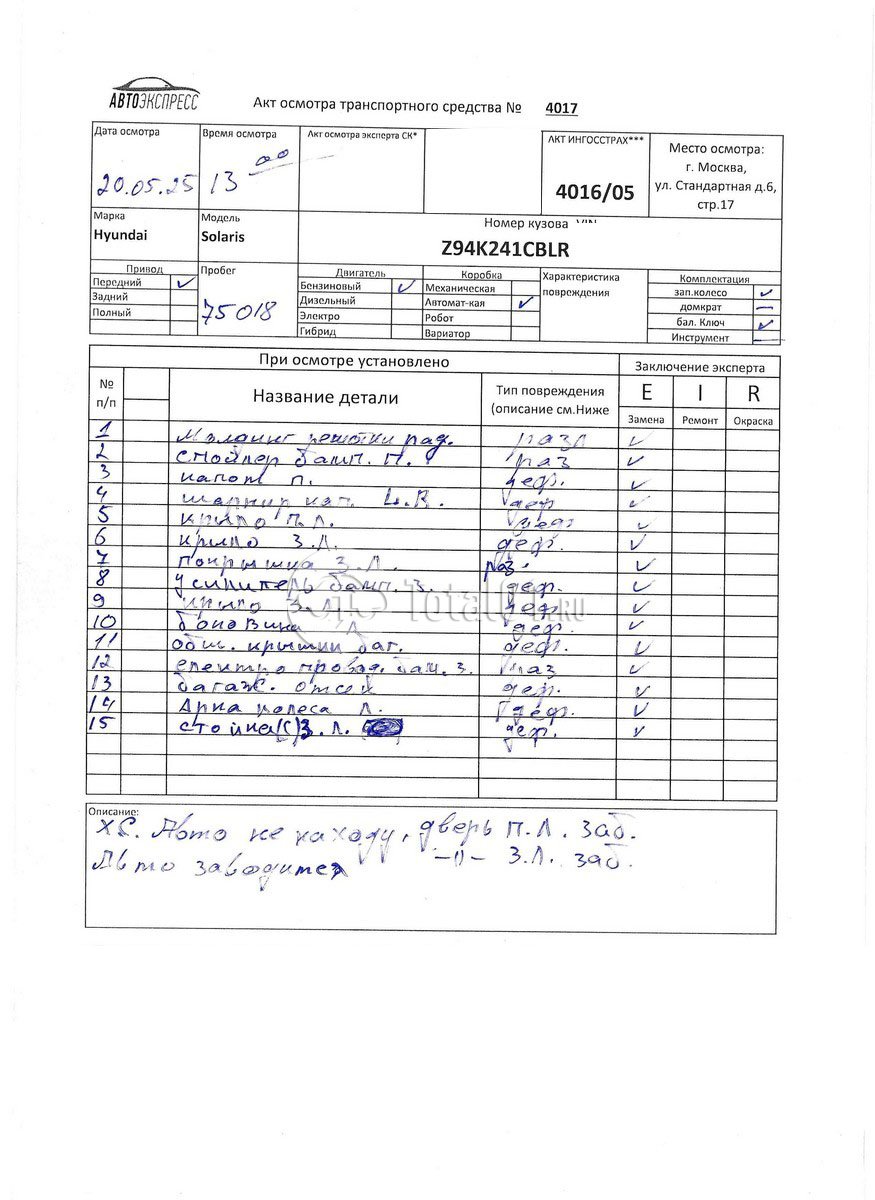 АВТОЭКСПРЕСС
Акт осмотра транспортного средства № 4017
Дата осмотра Время осмотра Акт осмотра эксперта СК* АКТ ИНГОССТРАХ*** Место осмотра:
г. Москва,
20.05.25 13 00 4016/05 ул. Стандартная д.6,
стр.17
Марка Модель Номер кузова VIN
Hyundai Solaris Z94K241CBLR
Привод Пробег Двигатель Коробка Характеристика Комплектация
Передний ✓ Бензиновый ✓ Механическая повреждения зап.колесо ✓
Задний 75018 Дизельный Автомат-кая ✓ домкрат —
Полный Электро Робот бал. Ключ ✓
Гибрид Вариатор Инструмент —
При осмотре установлено Заключение эксперта
№ п/п Название детали Тип повреждения E I R
(описание см.Ниже Замена Ремонт Окраска
1 решетки рад. ✓
2 спойлер бамп. П. раз ✓
3 капот п. деф. ✓
4 шарнир кап. L.R. деф ✓
5 крыло П.Л. ✓
6 крыло З.Л. деф. ✓
7 покрышка З.Л. раз. ✓
8 усилитель бамп. З. деф. ✓
9 З.Л деф ✓
10 боковина Л деф. ✓
11 обш. крышки баг. деф. ✓
12 електро провод. бам. З. раз ✓
13 багаж. отсек деф. ✓
14 Арка колеса Л. деф. ✓
15 стойка(С)З.Л. деф. ✓
Описание:
ХС. Авто не находу, дверь П.Л. заб.
Авто заводится -//- З.Л. заб.
TotalO1.RU